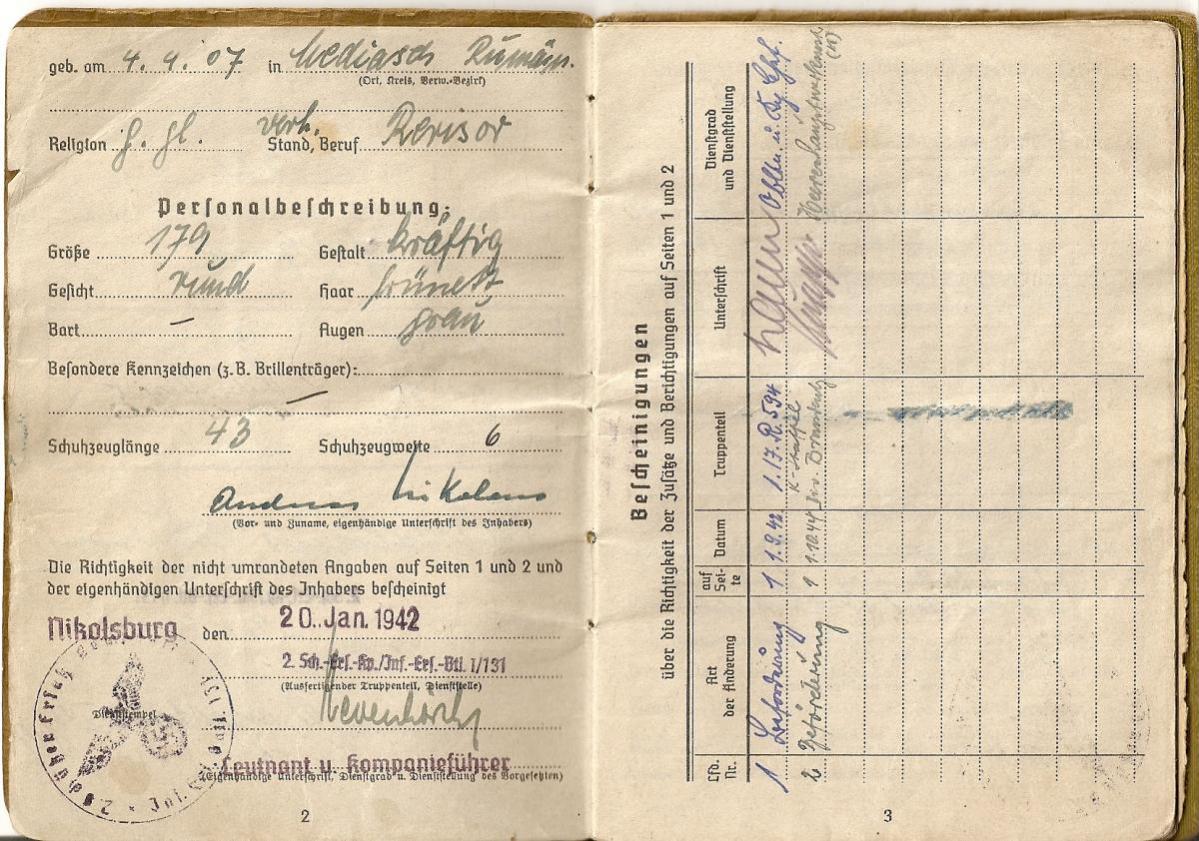 geb. am 4. 4. 07 in Mediasch Rumän.
(Ort, Kreis, Verw.-Bezirk)
Religion g. gl. Stand, Beruf verh. Revisor
Personalbeschreibung:
Größe 179 Gestalt kräftig
Gesicht rund Haar brünett
Bart – Augen grau
Besondere Kennzeichen (z.B. Brillenträger):
–
Schuhzeuglänge 43 Schuhzeugweite 6
Andreas Nikolaus
(Vor- und Zuname, eigenhändige Unterschrift des Inhabers)
Die Richtigkeit der nicht umrandeten Angaben auf Seiten 1 und 2 und
der eigenhändigen Unterschrift des Inhabers bescheinigt
Nikolsburg den 20. Jan. 1942
2. Sch.-Ers.-Kp./Inf.-Ers.-Btl. I/131
(Ausfertigender Truppenteil, Dienststelle)
Dienststempel
Leutnant u. Kompanieführer
(Eigenhändige Unterschrift, Dienstgrad u. Dienststellung des Vorgesetzten)
2
Bescheinigungen
über die Richtigkeit der Zusätze und Berichtigungen auf Seiten 1 und 2
Lfd. Nr. Art der Änderung auf Seite Datum Truppenteil Unterschrift Dienstgrad und Dienststellung
1 Beförderung 1 1.9.42 1.I.R.594
2 Beförderung 1 1.10.44 Div. Brandenbg
3